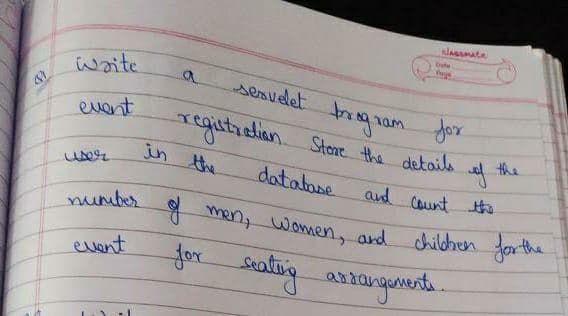 classmate
Date
Page
Q1 Write a servelet program for
event registration Store the details of the
user in the database and count the
number of men, women, and children for the
event for seating arrangements.